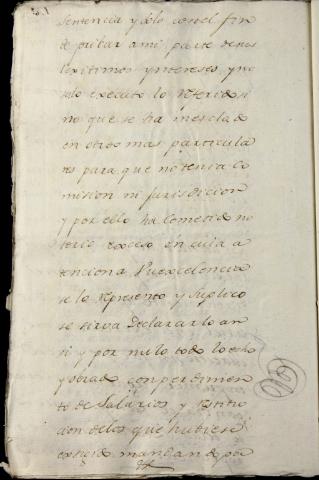 sentencia y solo con el fin
de pribar a mi parte de sus
lexitimos yntereses y no
solo executo lo referido si
no que se ha mesclado
en otros mas particula
res para que no tenia co
mision ni jurisdicion
y por ello ha cometido no
torio exceso en cuia a
tencion a Vuexcelencia
se lo represento y suplico
se sirva declararlo an
si y por nulo todo lo echo
y obrado con perdimien
to de salarios y restitu
cion de los que hubiese
exigido mandando por